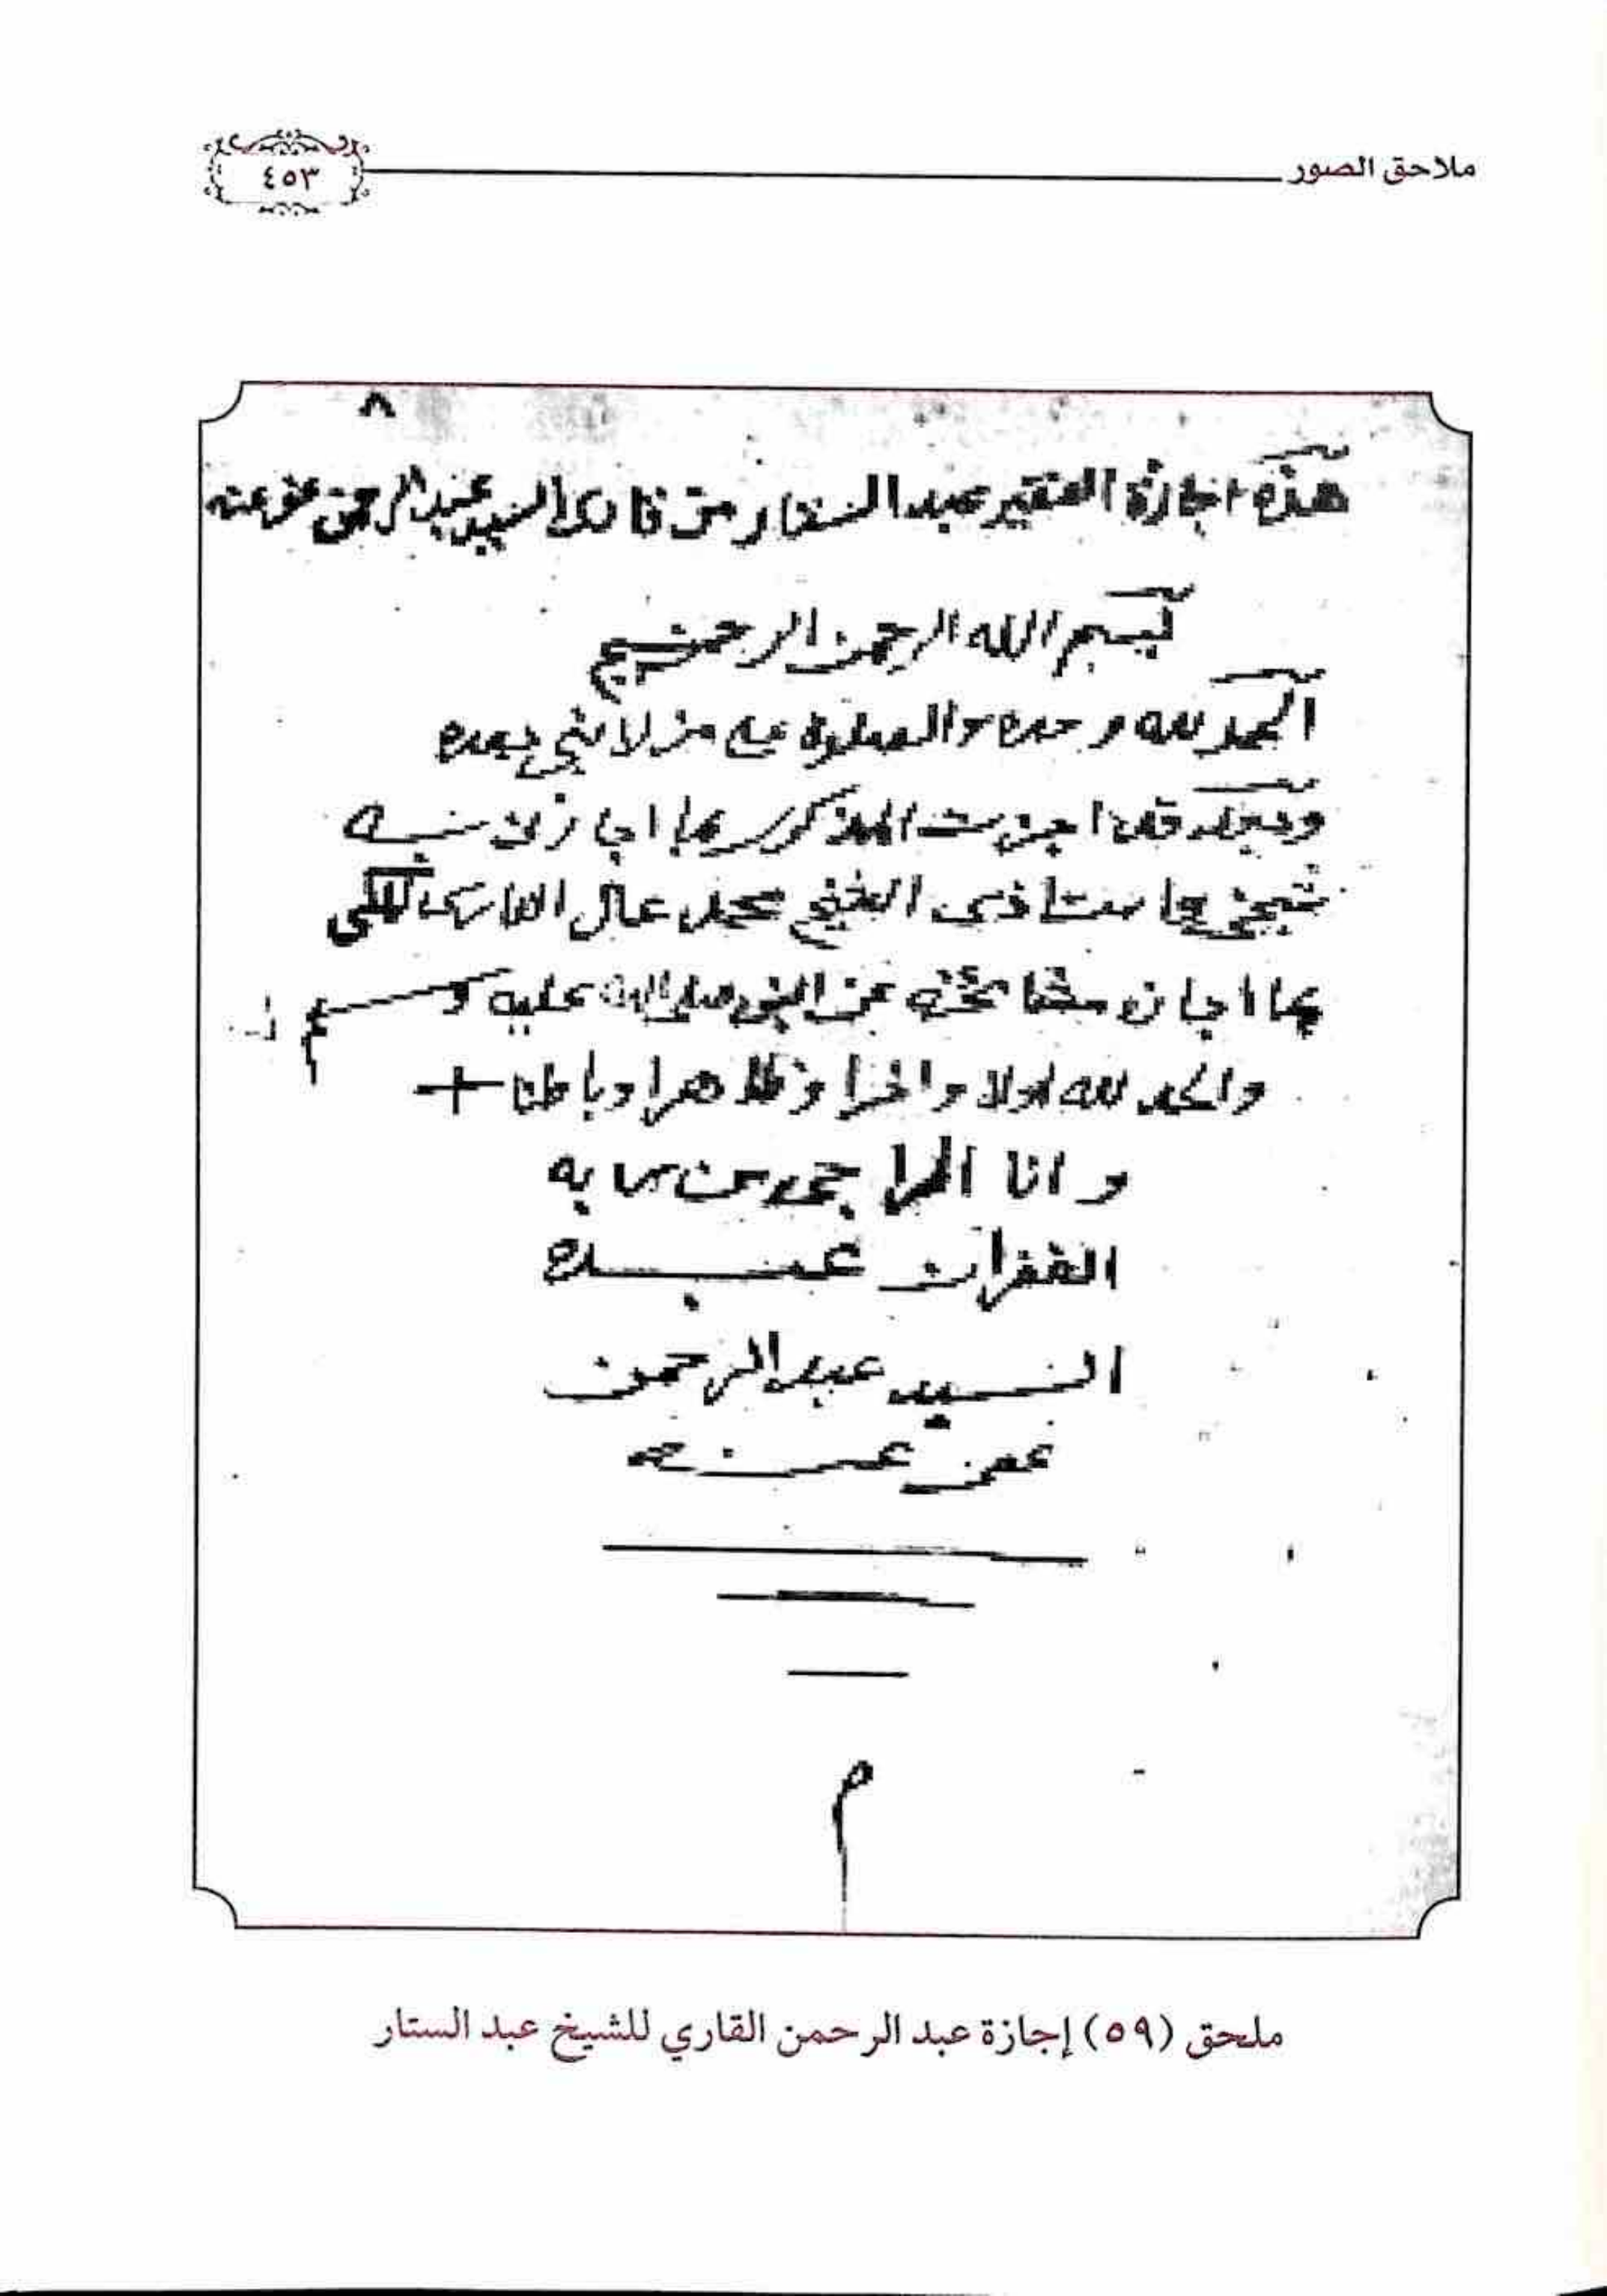 ملاحق الصور
٤٥٣
٨
هذه اجازة الفقير عبد الستار من السيد عبد الرحمن عفي عنه
بسم الله الرحمن الرحيم
الحمد لله وحده والصلوة على من لا نبي بعده
وبعد قد اجزت المذكور بما اجازني به
شيخي واستاذي الشيخ محمد عال القاري المكي
بما اجازه مشائخه عن النبي صلى الله عليه وسلم
والحمد لله اولا واخرا وظاهرا وباطنا
وانا الراجي من ربه
الغفران عبده
السيد عبد الرحمن
عفي عنه
م
ملحق (٥٩) إجازة عبد الرحمن القاري للشيخ عبد الستار